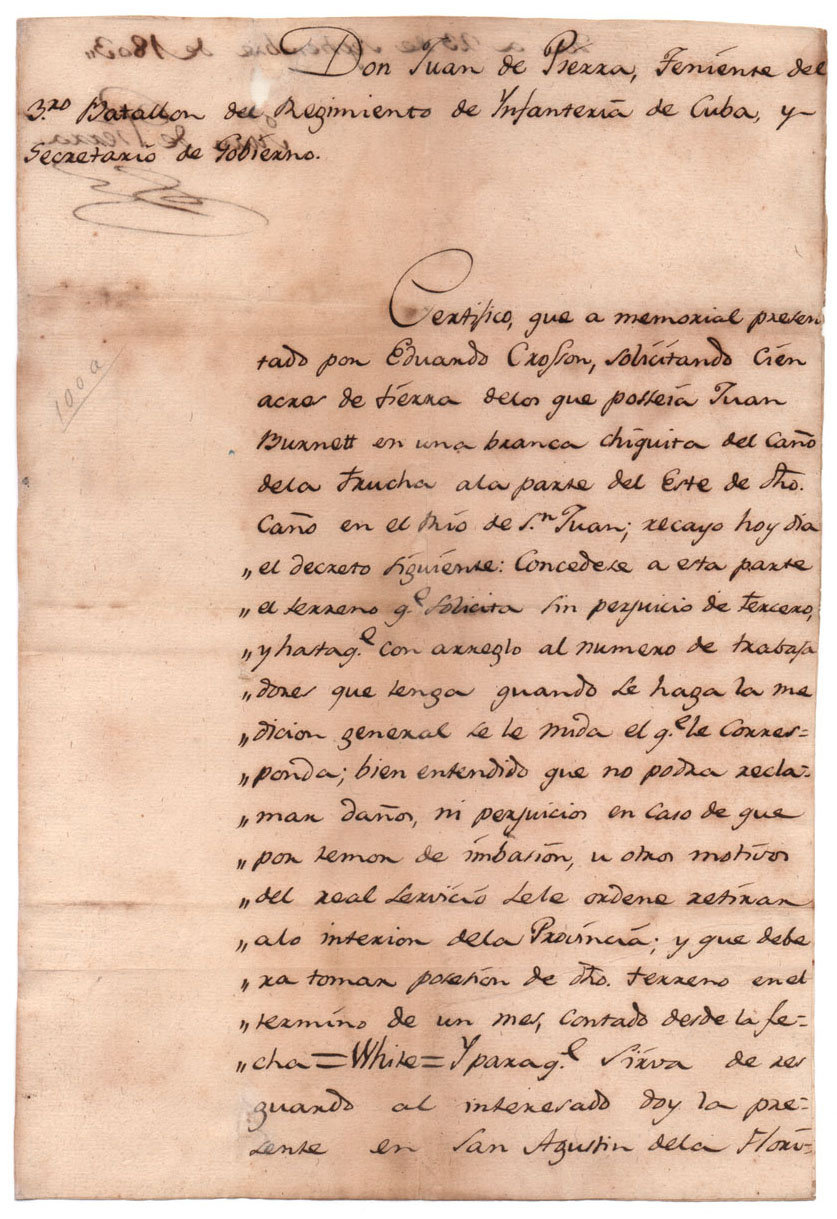 Don Juan de Pierra, Teniente del
3.ro Batallon del Regimiento de Infanteria de Cuba, y
Secretario de Gobierno.
Certifico, que a memorial presen
tado por Eduardo Crosson, solicitando cien
acres de tierra delos que posseia Juan
Burnett en una branca chiquita del caño
dela trucha ala parte del Este de dho.
Caño en el Rio de S.n Juan; recayo hoy dia
„ el decreto siguiente: Concedese a esta parte
„ el terreno q.e solicita sin perjuicio de tercero,
„ y hasta q.e con arreglo al numero de trabaja
„ dores que tenga quando se haga la me
„ dicion general se le mida el q.e le corres=
„ ponda; bien entendido que no podra recla=
„ mar daños, ni perjuicios en caso de que
„ por temor de imbasion, u otros motivos
„ del real servicio sele ordene retirar
„ alo interior dela Provincia; y que debe
„ ra tomar posesion de dho. terreno en el
„ termino de un mes, contado desde la fe=
„ cha = White = Y para q.e sirva de res
guardo al interesado doy la pre=
sente en San Agustin dela Flori=
1000